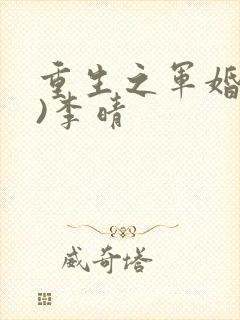 重生之军婚
)李晴
威奇塔